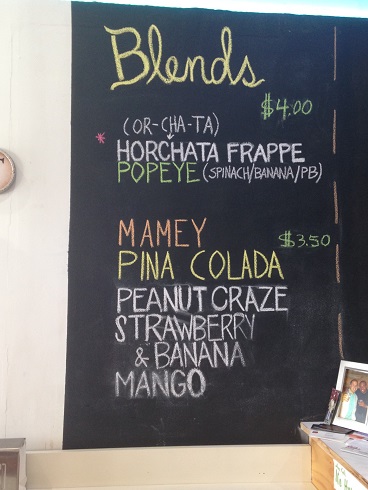 Blends
$4.00
(OR-CHA-TA)
* HORCHATA FRAPPE
POPEYE (SPINACH/BANANA/PB)
MAMEY $3.50
PINA COLADA
PEANUT CRAZE
STRAWBERRY
& BANANA
MANGO